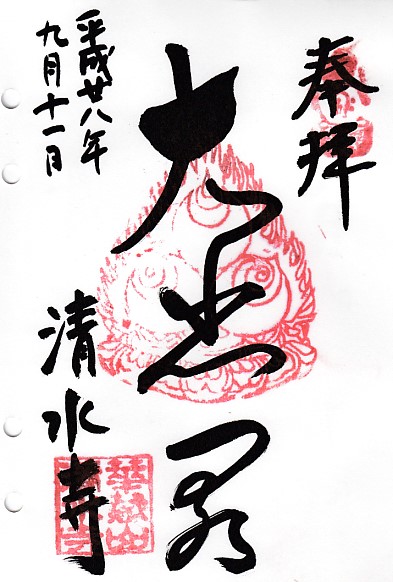 奉拝
大悲閣
平成廿八年
九月十一日
清水寺